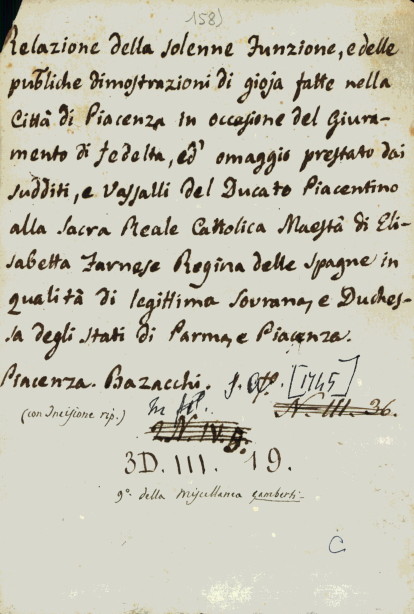 158)
Relazione della solenne Funzione, e delle
publiche dimostrazioni di gioja fatte nella
Città di Piacenza in occasione del Giura-
mento di fedelta, ed' omaggio prestato dai
sudditi, e Vassalli del Ducato Piacentino
alla Sacra Reale Cattolica Maestà di Eli-
sabetta Farnese Regina delle Spagne in
qualità di legittima Sovrana, e Duches-
sa degli Stati di Parma, e Piacenza.
Piacenza. Bazacchi. [1745]
(con Incisione rip.) N. III. 36.
2 N. IV. 9.
3D. III. 19.
9° della Miscellanea Gamberti
C